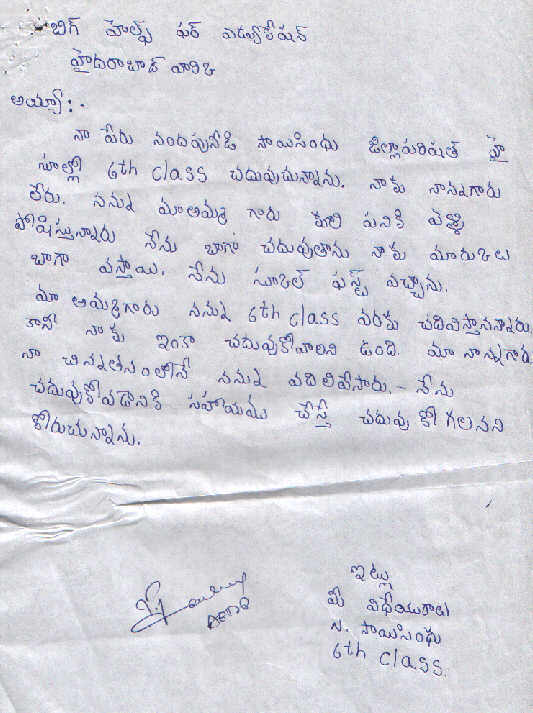 బిగ్ హెల్ప్ ఫర్ ఎడ్యుకేషన్
హైదరాబాద్ వారికి
అయ్యా:-
నా పేరు నందిపునేడి సాయిసింధు జిల్లాపరిషత్ హై
స్కూల్లో 6th class చదువుచున్నాను. నాకు నాన్నగారు
లేరు. నన్ను మాఅమ్మ గారు కూలి పనికి వెళ్ళి
పోషిస్తున్నారు నేను బాగా చదువుతాను నాకు మారుకులు
బాగా వస్తాయి. నేను స్కూల్ ఫస్ట్ వచ్చాను.
మా అమ్మగారు నన్ను 6th class వరకు చదివిస్తానన్నారు.
కానీ నాకు ఇంకా చదువుకోవాలని ఉంది. మా నాన్నగారు
నా చిన్నతనంలోనే నన్ను వదిలివేసారు. - నేను
చదువుకోవడానికి సహాయము చేస్తే చదువు కో గలనని
కోరుచున్నాను.
ఇట్లు
మీ విధేయురాలు
న. సాయిసింధు
6th class.